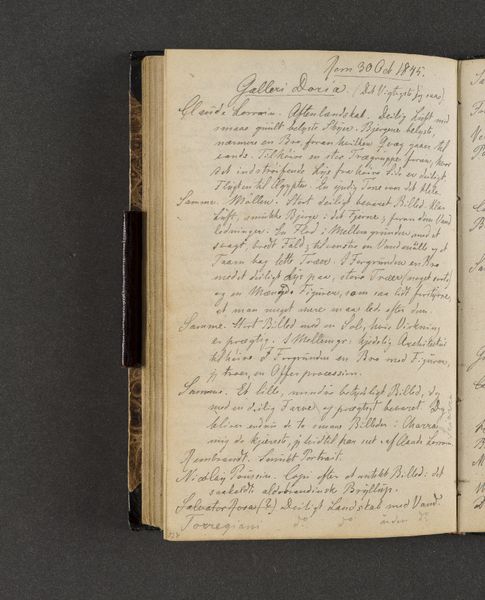 Rom 30 Oct 1845.
Galleri Doria. (Det Vigtigste jeg saae)
Claude Lorrain. Aftenlandskab. Deilig Luft med
smaae guult belyste Skyer. Bjergene belyste,
nærmere en Bro, foran hvilken Qvæg gaaer til
vands. Tilhøire en stor Trægruppe foran, hvor
det indstreifende Lys fra høire Side er deiligt
Flugten til Ægypten. En yndig Tone over det Hele.
Samme. Møllen. Stort deiligt bevaret Billed. Klar
Luft, smukke Bjerge i det Fjerne, foran dem Vand
ledninger. En Flod i Mellemgrunden med et
svagt, bredt Fald; til venstre en Vandmølle og et
Taarn bag lette Træer. I Forgrunden en Bro
med et deiligt Lys paa, store Træer (noget sorte)
og en Mængde Figurer, som ere lidt forstyrre
et man meget mere maa lede efter dem.
Samme. Stort Billed med en Sol, hvis Virkning
er prægtig. I Mellemgr. kjedelig Architectur
tilhøire I Forgrunden en Bro med Figurer,
og troer, en Offerprocession.
Samme. Et lille, mindre betydeligt Billed,
med en deilig Farve og prægtigt bevaret.
bliver endnu de to smaae Billeder i
mig de kjæreste, jeg leidtil har seet af Claude Lorrain
Rembrandt. Smukt Portrait.
Nicolas Poussin. Copi efter et antikt Billed: det
saakaldte aldobrandinske Bryllup.
Salvator Rosa (?) Deiligt Landskab med Vand.
Torregiani do do uden do